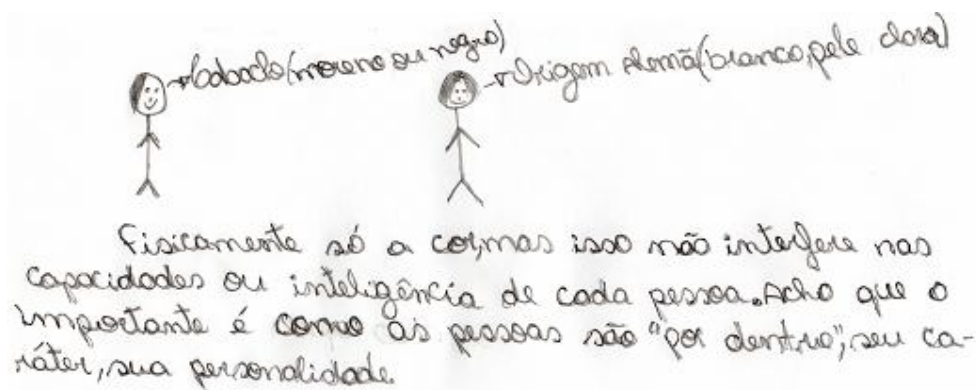 Caboclo (moreno ou negro)
Origem Alemã (branco, pele clara)
Fisicamente só a cor, mas isso não interfere nas
capacidades ou inteligência de cada pessoa. Acho que o
importante é como as pessoas são "por dentro", seu ca-
ráter, sua personalidade.